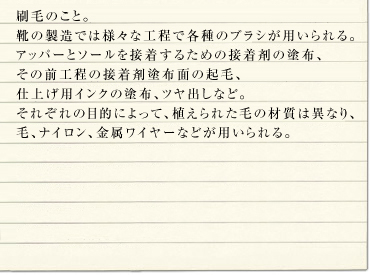 刷毛のこと。
靴の製造では様々な工程で各種のブラシが用いられる。
アッパーとソールを接着するための接着剤の塗布、
その前工程の接着剤塗布面の起毛、
仕上げ用インクの塗布、ツヤ出しなど。
それぞれの目的によって、植えられた毛の材質は異なり、
毛、ナイロン、金属ワイヤーなどが用いられる。